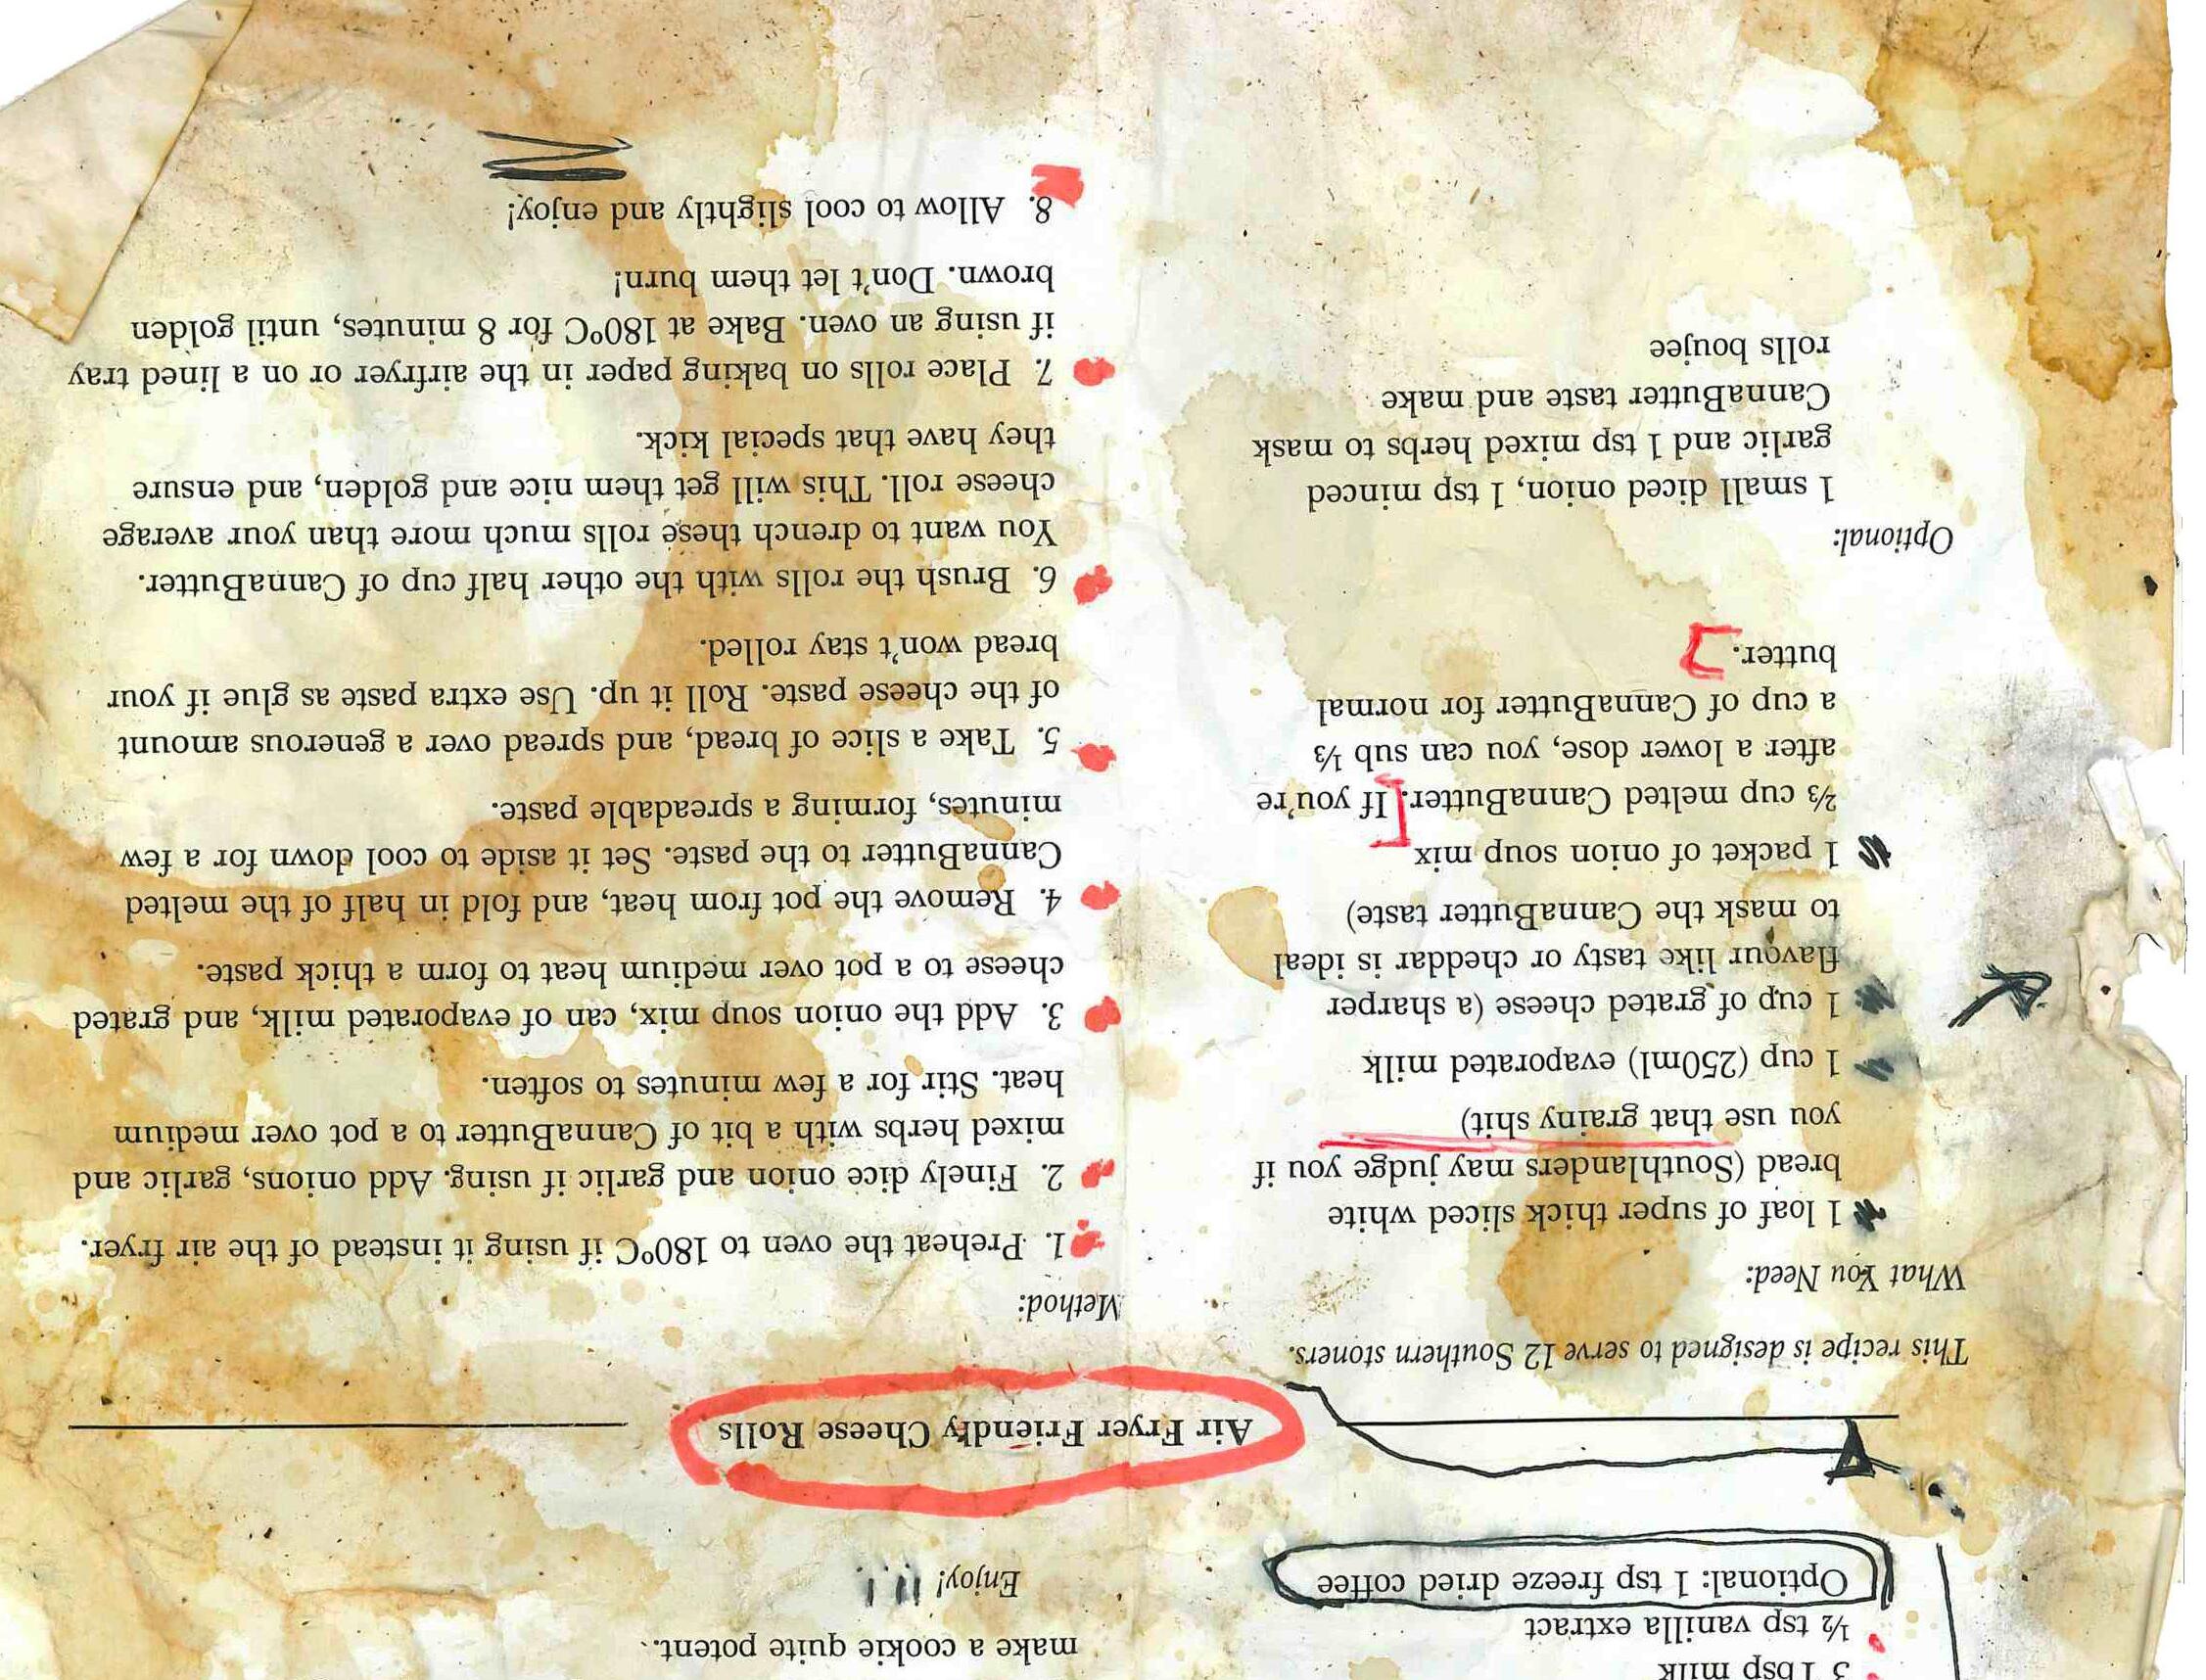 3 Tbsp milk
½ tsp vanilla extract
Optional: 1 tsp freeze dried coffee
make a cookie quite potent.
Enjoy! !!!
Air Fryer Friendly Cheese Rolls
This recipe is designed to serve 12 Southern stoners.
What You Need:
1 loaf of super thick sliced white
bread (Southlanders may judge you if
you use that grainy shit)
1 cup (250ml) evaporated milk
1 cup of grated cheese (a sharper
flavour like tasty or cheddar is ideal
to mask the CannaButter taste)
1 packet of onion soup mix
⅔ cup melted CannaButter. [If you're
after a lower dose, you can sub ⅓
a cup of CannaButter for normal
butter.]
Optional:
1 small diced onion, 1 tsp minced
garlic and 1 tsp mixed herbs to mask
CannaButter taste and make
rolls boujee
Method:
1. Preheat the oven to 180ºC if using it instead of the air fryer.
2. Finely dice onion and garlic if using. Add onions, garlic and
mixed herbs with a bit of CannaButter to a pot over medium
heat. Stir for a few minutes to soften.
3. Add the onion soup mix, can of evaporated milk, and grated
cheese to a pot over medium heat to form a thick paste.
4. Remove the pot from heat, and fold in half of the melted
CannaButter to the paste. Set it aside to cool down for a few
minutes, forming a spreadable paste.
5. Take a slice of bread, and spread over a generous amount
of the cheese paste. Roll it up. Use extra paste as glue if your
bread won't stay rolled.
6. Brush the rolls with the other half cup of CannaButter.
You want to drench these rolls much more than your average
cheese roll. This will get them nice and golden, and ensure
they have that special kick.
7. Place rolls on baking paper in the airfryer or on a lined tray
if using an oven. Bake at 180ºC for 8 minutes, until golden
brown. Don't let them burn!
8. Allow to cool slightly and enjoy!